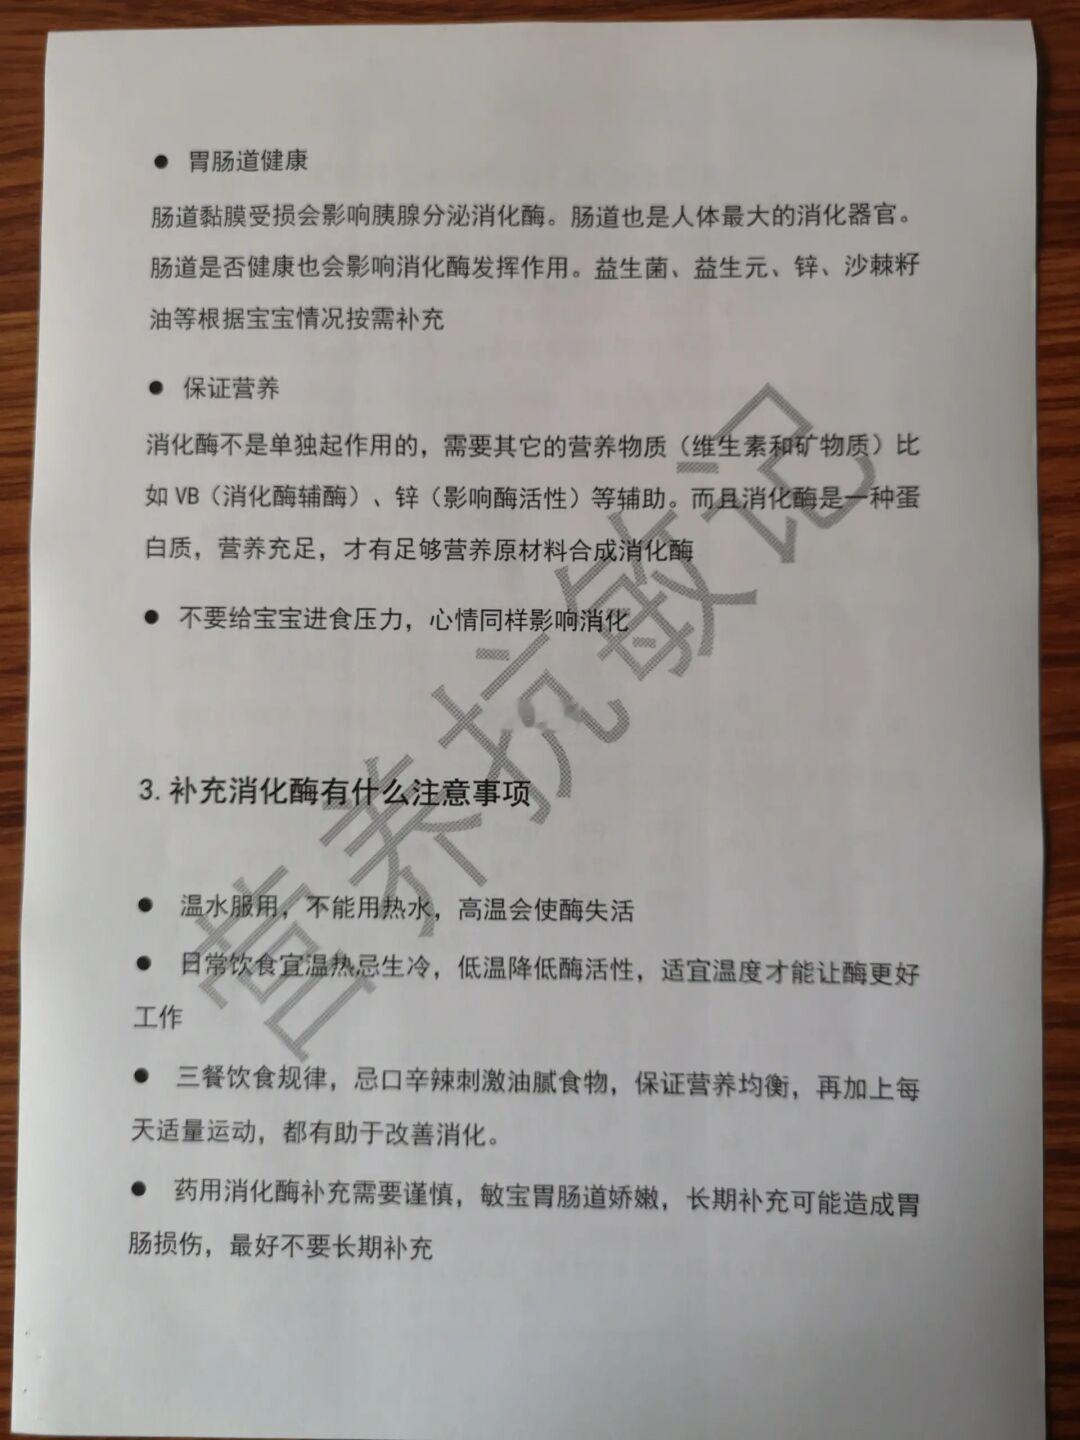 ● 胃肠道健康
肠道黏膜受损会影响胰腺分泌消化酶。肠道也是人体最大的消化器官。
肠道是否健康也会影响消化酶发挥作用。益生菌、益生元、锌、沙棘籽
油等根据宝宝情况按需补充
● 保证营养
消化酶不是单独起作用的，需要其它的营养物质（维生素和矿物质）比
如 VB（消化酶辅酶）、锌（影响酶活性）等辅助。而且消化酶是一种蛋
白质，营养充足，才有足够营养原材料合成消化酶
● 不要给宝宝进食压力，心情同样影响消化
3.补充消化酶有什么注意事项
● 温水服用，不能用热水，高温会使酶失活
● 日常饮食宜温热忌生冷，低温降低酶活性，适宜温度才能让酶更好
工作
● 三餐饮食规律，忌口辛辣刺激油腻食物，保证营养均衡，再加上每
天适量运动，都有助于改善消化。
● 药用消化酶补充需要谨慎，敏宝胃肠道娇嫩，长期补充可能造成胃
肠损伤，最好不要长期补充
营养抗敏记